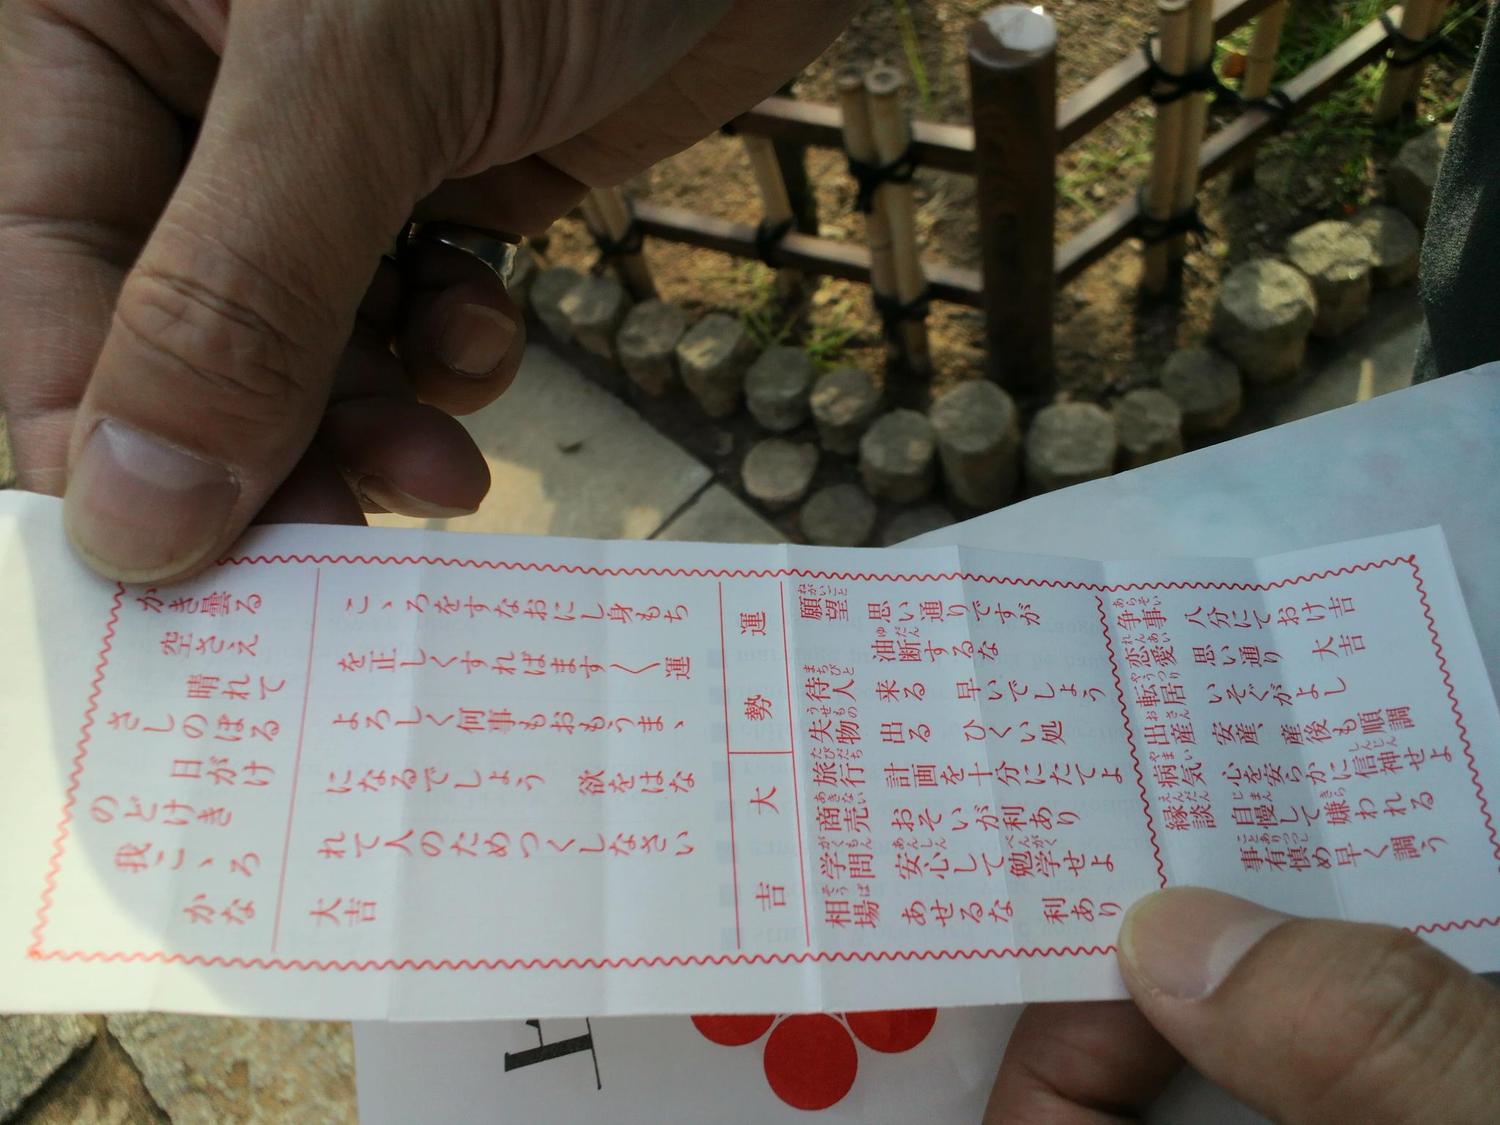 かき曇る
空さえ
晴れて
さしのぼる
日かげ
のどけき
我こゝろ
かな
こゝろをすなおにし身もち
を正しくすればます〱運
よろしく何事もおもうまゝ
になるでしょう 欲をはな
れて人のためつくしなさい
大吉
運勢 大吉
願望 思い通りですが
油断するな
待人 来る 早いでしょう
失物 出る ひくい処
旅行 計画を十分にたてよ
商売 おそいが利あり
学問 安心して勉学せよ
相場 あせるな 利あり
争事 人分にておけ吉
恋愛 思い通り 大吉
転居 いそぐがよし
出産 安産、産後も順調
病気 心を安らかに信神せよ
縁談 自慢して嫌われる
事有 慎め早く調う